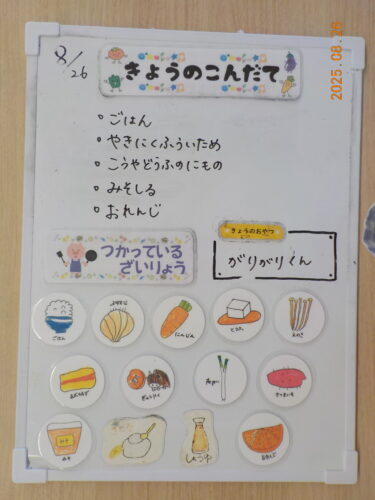 8/26
きょうのこんだて
2025.08.26
ごはん
やきにくふういため
こうやどうふのにもの
みそしる
おれんじ
きょうのおやつ
がりがりくん
つかっている
ざいりょう
ごはん
にんじん
とうふ
えのき
みそ
しょうゆ